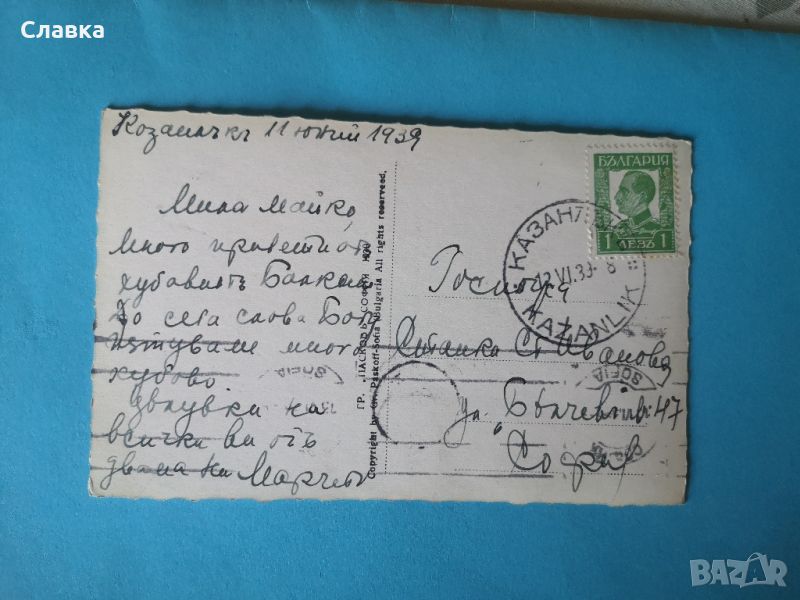 Славка
Козанлъкъ 11 юний 1939
Мила майко,
много приветi от
хубавиятъ Балкан
до сега слова Богу
пътувале много
хубово
цвлувки на
всички ви отъ
двама ни
ГР. ПАСКОВЪ СОФИЯ
Copyright by Gr. Paskoff-Sofia Bulgaria All rights reserveed.
БЪЛГАРИЯ
1 ЛЕВЪ 1
КАЗАНЛ
12.VI.39- 8
KAZANLIK
Госпожа
Станка Ст. Иванова
ул. 47
София
SOFIA
BAZAR